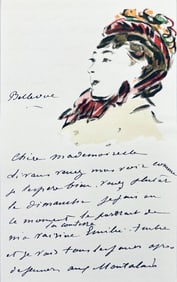 Bellevue
Chère mademoiselle
si vous venez nous voir comme
je l'espère bien. venez plutôt
le dimanche je fais en
ce moment le portrait de
ma voisine la cantatrice Emilie
et je vais tous les jours après
déjeuner aux Montalais